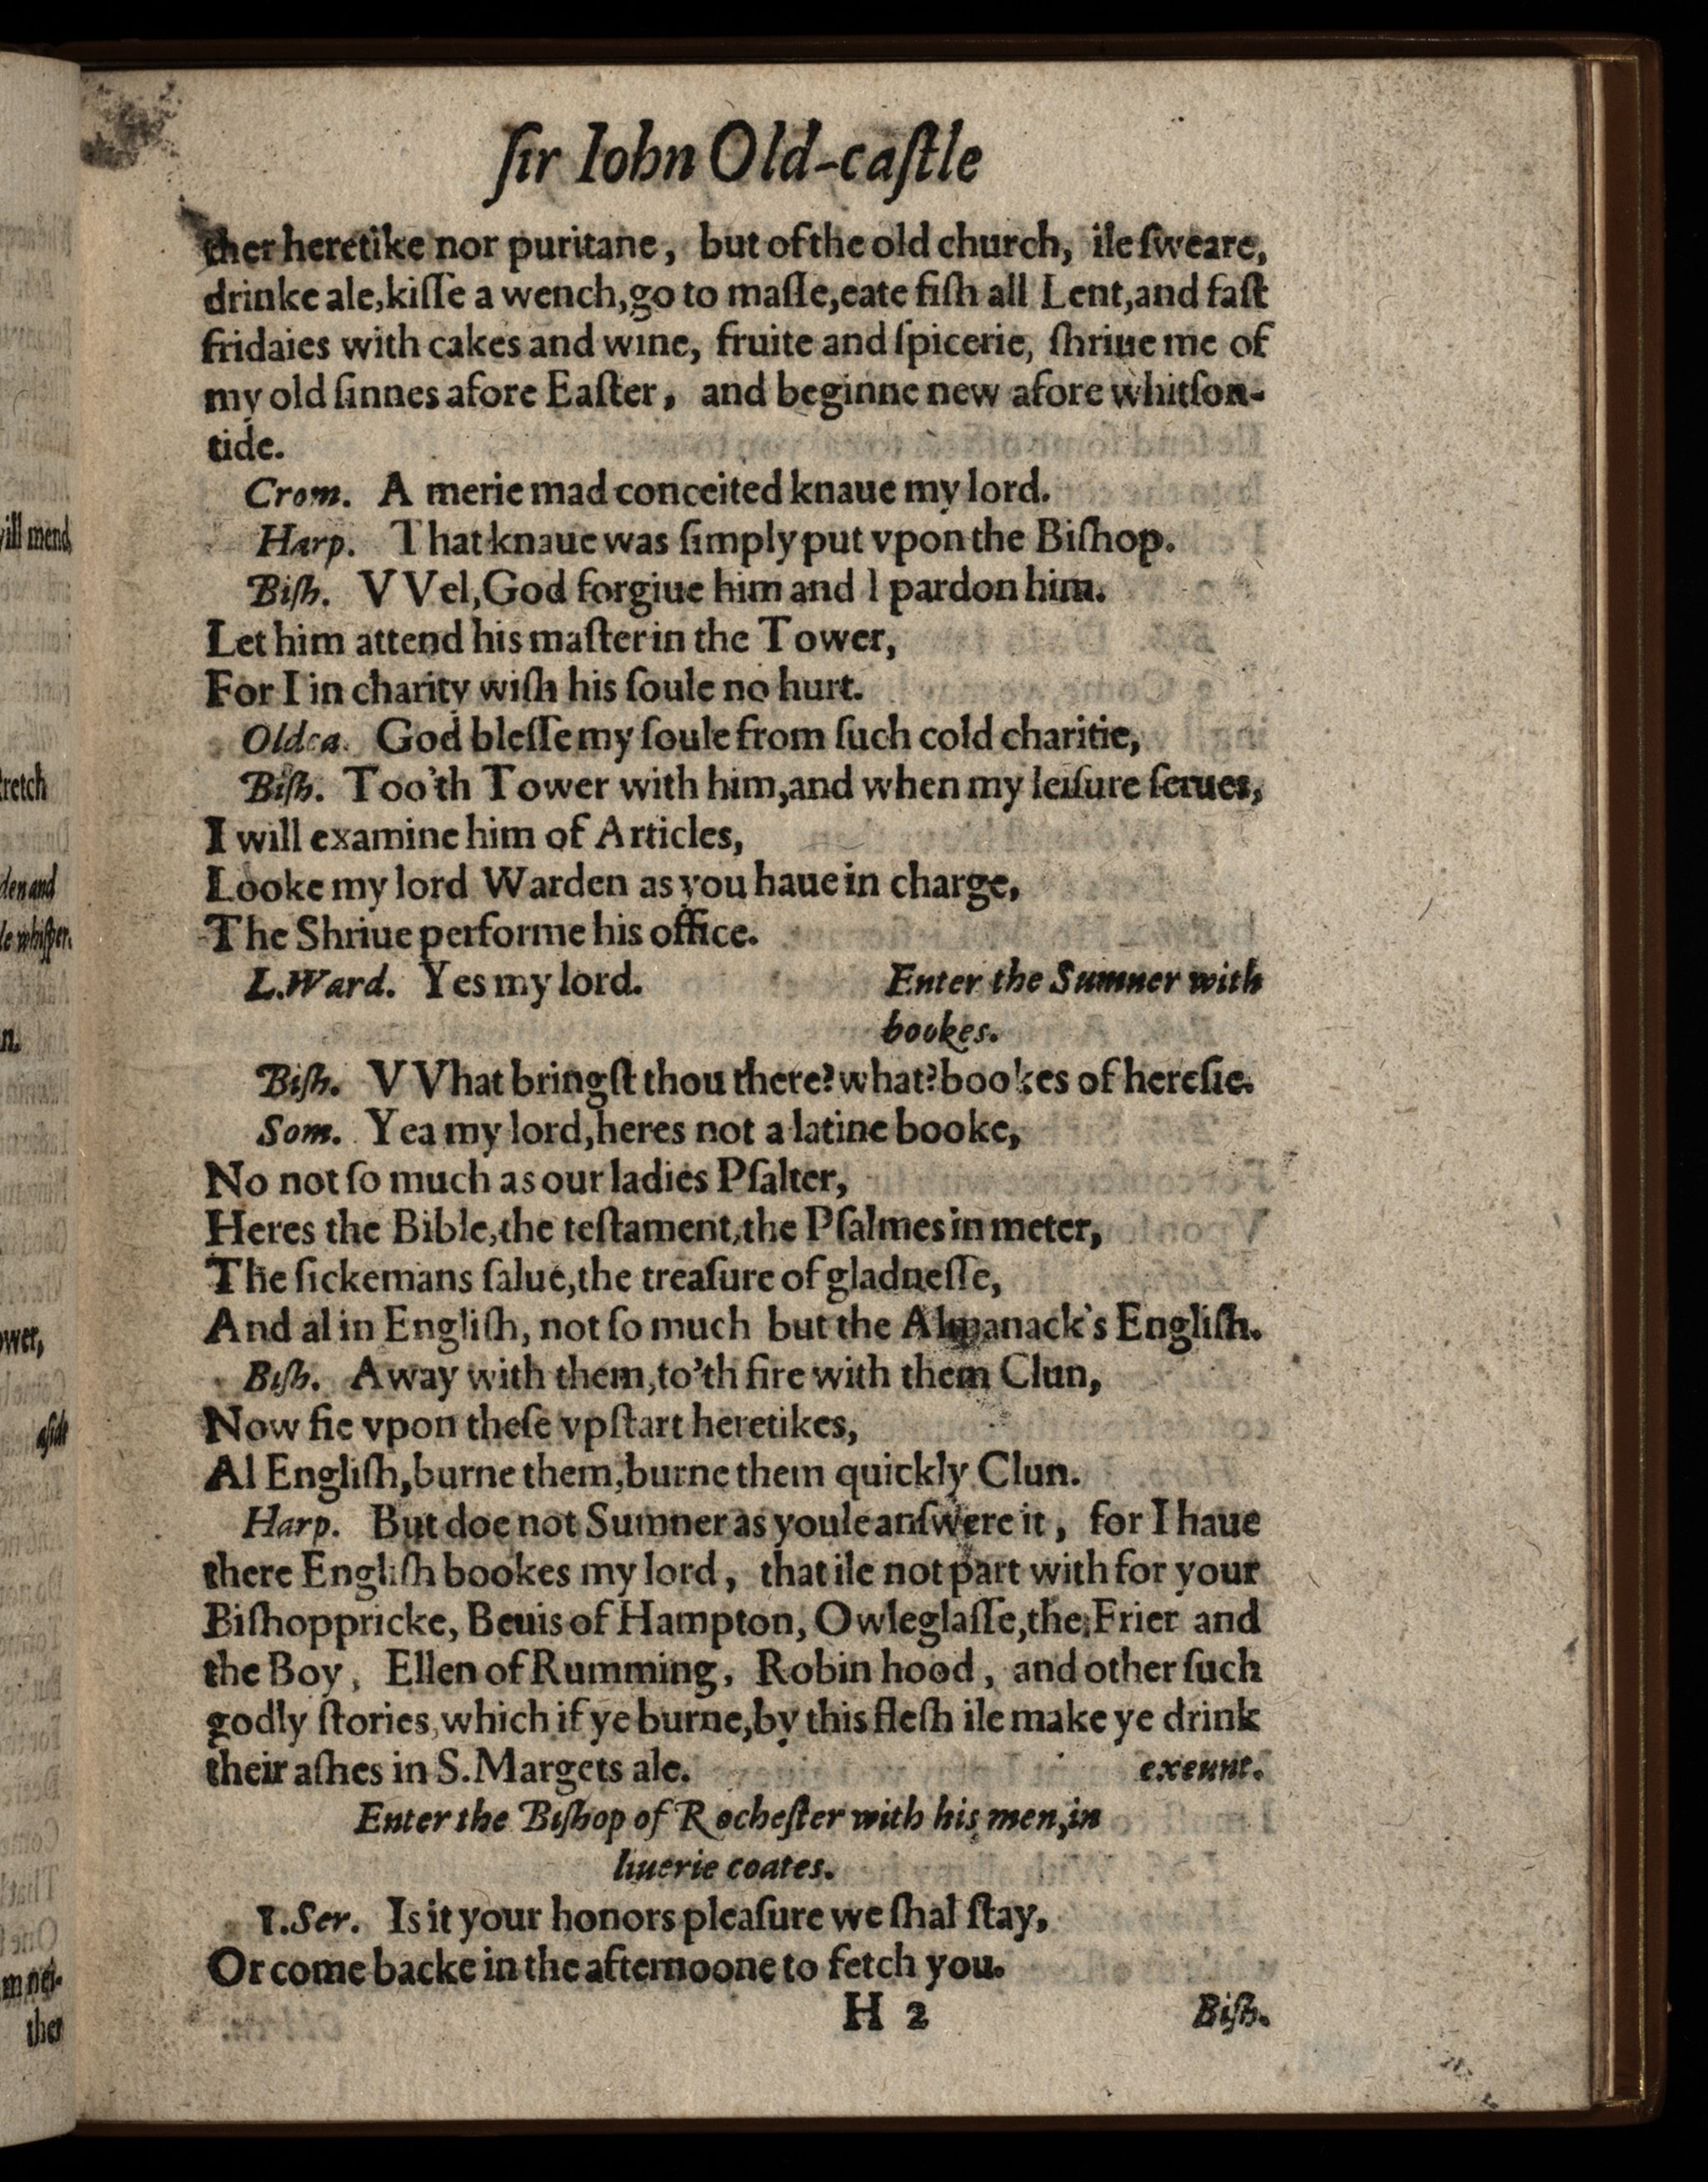 ſir Iohn Old-caſtle
ther heretike nor puritane, but of the old church, ile ſweare,
drinke ale,kiſſe a wench,go to maſſe,eate fiſh all Lent,and faſt
fridaies with cakes and wine, fruite and ſpicerie, ſhriue me of
my old ſinnes afore Eaſter, and beginne new afore whitſon-
tide.
Crom. A merie mad conceited knaue my lord.
Harp. That knaue was ſimply put vpon the Biſhop.
Biſh. VVel,God forgiue him and I pardon him.
Let him attend his maſter in the Tower,
For I in charity wiſh his ſoule no hurt.
Oldca. God bleſſe my ſoule from ſuch cold charitie,
Biſh. Too'th Tower with him,and when my leiſure ſerues,
I will examine him of Articles,
Looke my lord Warden as you haue in charge,
The Shriue performe his office.
L.Ward. Yes my lord. Enter the Sumner with
bookes.
Biſh. VVhat bringſt thou there? what? bookes of hereſie.
Som. Yea my lord,heres not a latine booke,
No not ſo much as our ladies Pſalter,
Heres the Bible,the teſtament,the Pſalmes in meter,
The ſickemans ſalue,the treaſure of gladneſſe,
And al in Engliſh, not ſo much but the Almanack's Engliſh.
Biſh. Away with them,to'th fire with them Clun,
Now fie vpon theſe vpſtart heretikes,
Al Engliſh,burne them,burne them quickly Clun.
Harp. But doe not Sumner as youle anſwere it, for I haue
there Engliſh bookes my lord, that ile not part with for your
Biſhoppricke, Beuis of Hampton, Owleglaſſe,the Frier and
the Boy, Ellen of Rumming, Robin hood, and other ſuch
godly ſtories,which if ye burne,by this fleſh ile make ye drink
their aſhes in S.Margets ale. exeunt.
Enter the Biſhop of Rocheſter with his men,in
liuerie coates.
1.Ser. Is it your honors pleaſure we ſhal ſtay,
Or come backe in the afternoone to fetch you.
H 2 Biſh.
ill mend
retch
den and
le whiſper.
n.
wer,
aſide
m nei-
ther